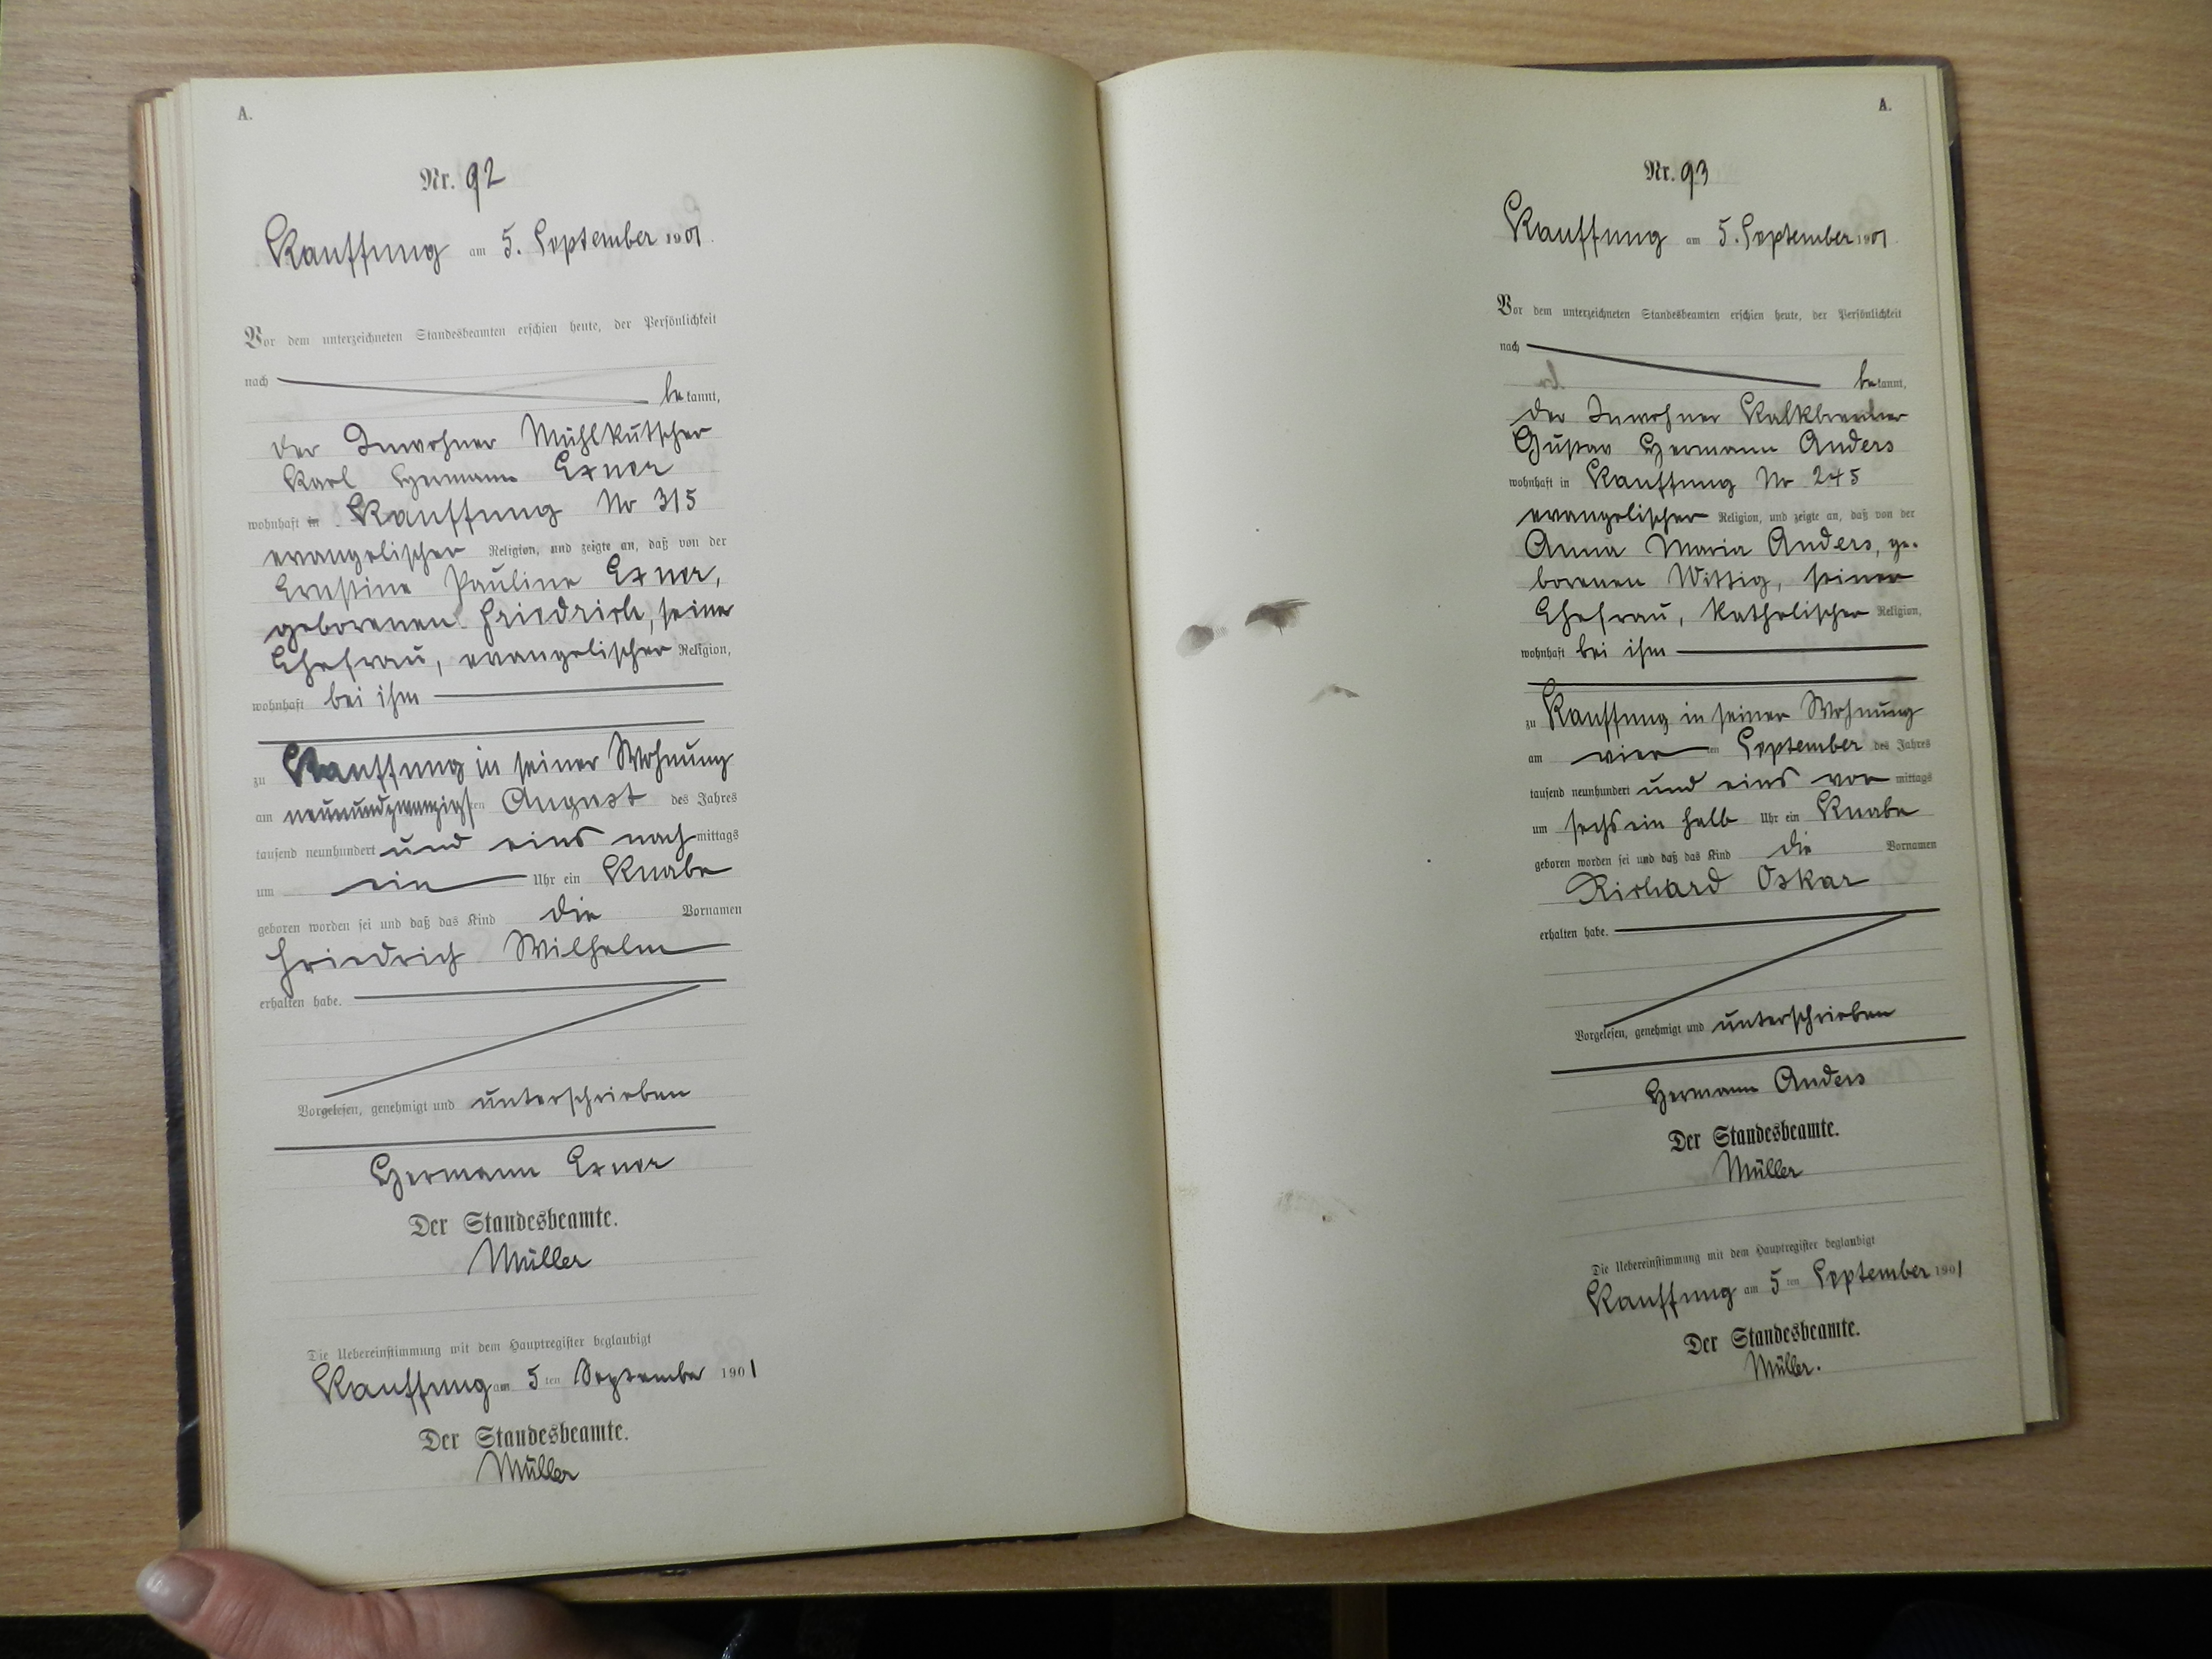 A.
Nr. 92
Kauffung am 5. September 1901.
Vor dem unterzeichneten Standesbeamten erschien heute, der Persönlichkeit
nach
bekannt,
der Inwohner Mühlkutscher
Karl Hermann Exner
wohnhaft in Kauffung No 315
evangelischer Religion, und zeigte an, daß von der
Ernstine Pauline Exner,
geborenen Friedrich, seiner
Ehefrau, evangelischer Religion,
wohnhaft bei ihm
zu Kauffung in seiner Wohnung
am neunundzwanzigsten August des Jahres
tausend neunhundert und eins nachmittags
um ein Uhr ein Knabe
geboren worden sei und daß das Kind die Vornamen
Friedrich Wilhelm
erhalten habe.
Vorgelesen, genehmigt und unterschrieben
Hermann Exner
Der Standesbeamte.
Müller
Die Uebereinstimmung mit dem Hauptregister beglaubigt
Kauffung am 5 ten September 1901
Der Standesbeamte.
Müller
A.
Nr. 93
Kauffung am 5. September 1901.
Vor dem unterzeichneten Standesbeamten erschien heute, der Persönlichkeit
nach
bekannt,
der Inwohner Kalkbrenner
Gustav Hermann Anders
wohnhaft in Kauffung No 245
evangelischer Religion, und zeigte an, daß von der
Anna Maria Anders, ge-
borenen Wittig, seiner
Ehefrau, katholischer Religion,
wohnhaft bei ihm
zu Kauffung in seiner Wohnung
am vier ten September des Jahres
tausend neunhundert und eins vormittags
um sechs ein halb Uhr ein Knabe
geboren worden sei und daß das Kind die Vornamen
Richard Oskar
erhalten habe.
Vorgelesen, genehmigt und unterschrieben
Hermann Anders
Der Standesbeamte.
Müller
Die Uebereinstimmung mit dem Hauptregister beglaubigt
Kauffung am 5 ten September 1901
Der Standesbeamte.
Müller.